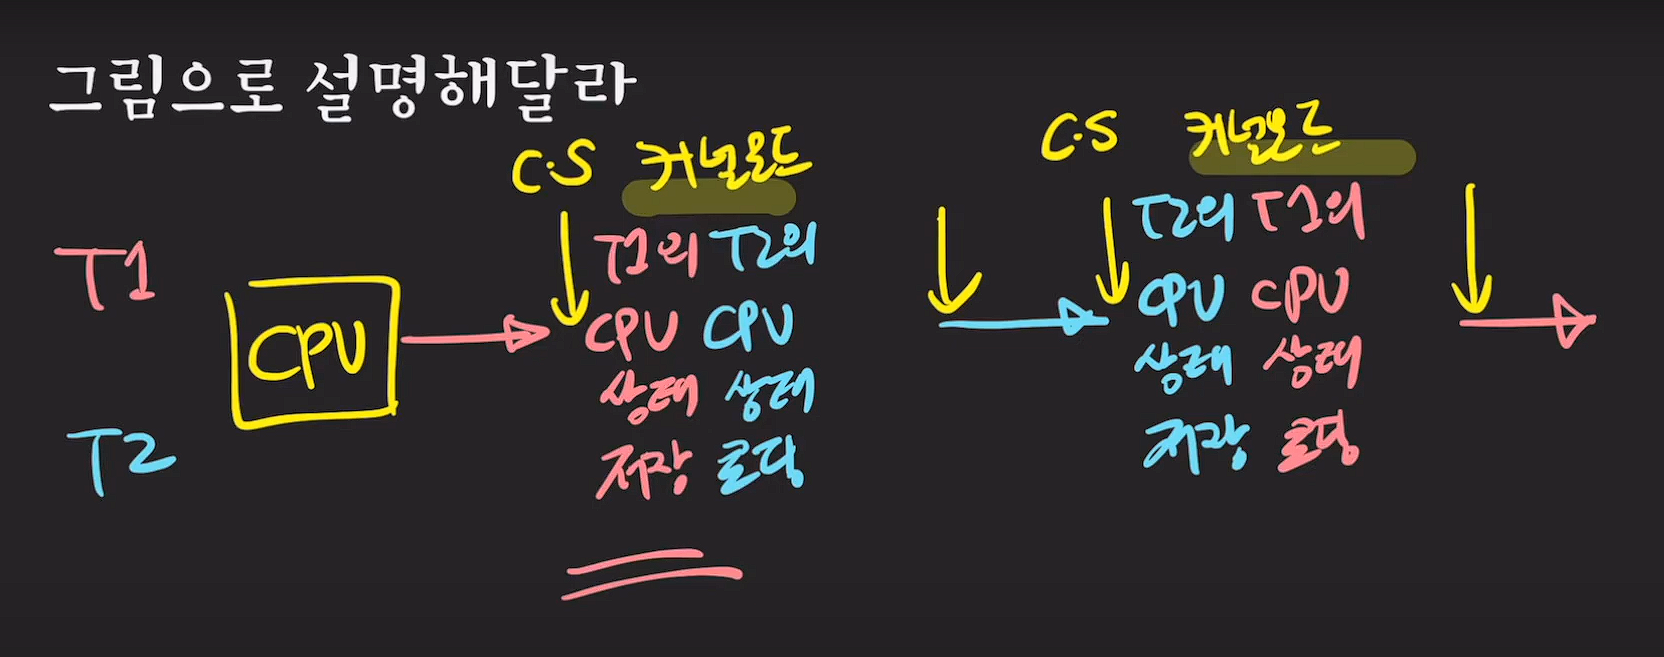 그림으로 설명해달라
C·S 커널모드
C·S 커널모드
T1
T2
CPU
T1의 T2의
CPU CPU
상태 상태
저장 로딩
T2의 T1의
CPU CPU
상태 상태
저장 로딩